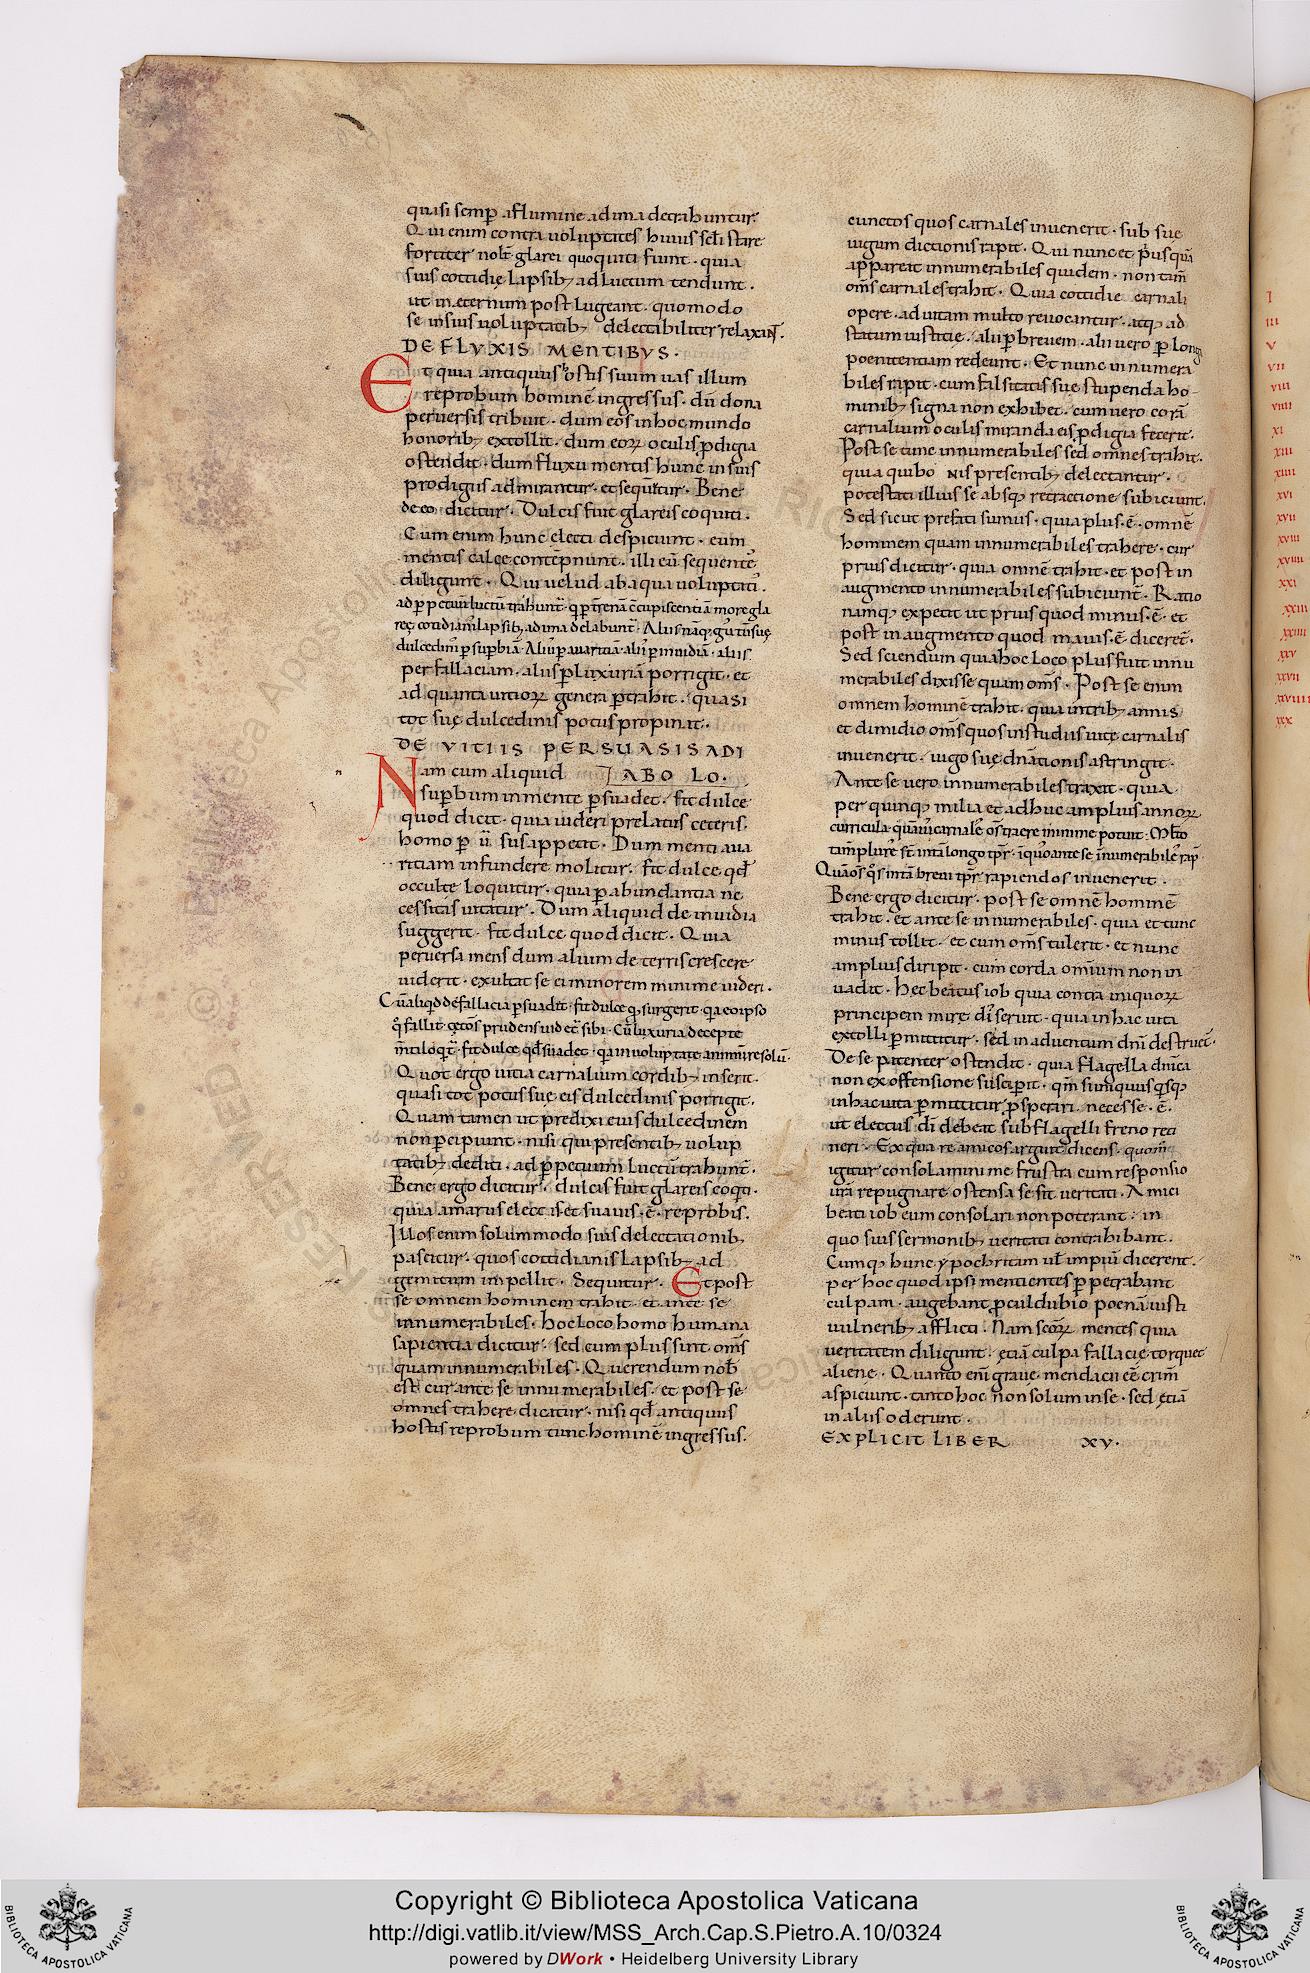 quasi semꝑ aflumine adima detrahuntur.
Qui enim contra uoluptates huius scłi stare
fortiter nolt̄ glarei quoquiti fiunt. quia
suis cottidię lapsibꝫ adluctum tendunt.
ut in eternum post lugeant. quomodo
se insuis uoluptatibꝫ delectibiliter relaxant.
DE FLVXIS MENTIBVS.
Et quia antiquus hostis suum uas illum
reprobum hominē ingressus. dū dona
peruersis tribuit. dum eos inhoc mundo
honoribꝫ extollit. dum eoꝝ oculis ꝓdigia
ostendit. dum fluxu mentis hunc insuis
prodigiis admirantur. et sequunt̄ur. Bene
de eo dicitur. Dulcis fuit glareis coquiti.
Cum enim hunc electi despiciunt. eum
mentis calce contēpnunt. illi eū sequentes
diligunt. Qui uelud abaqua uoluptatū.
ad ꝑpetuū luctū trahunt̄. q ꝑ terrenā cōcupiscentiā more gla
reę cotidianis lapsibꝫ adima delabunt̄. Aliis nāqꝫ gustū suę
dulcedinis ꝑ supbiā. Aliis ꝑ auaritiā. alii ꝑ inuidiā. aliis
per fallaciam. aliis ꝑ luxuriā porrigit. et
ad quanta uitioꝝ genera ꝑtrahit. quasi
tot suę dulcedinis potus propinat.
DE VITIIS PERSUASIS ADI
Nam cum aliquid IABO LO.
supbum inmente ꝑsuadet. fit dulce
quod dicit. quia uideri prelatus ceteris.
homo ꝑ uersus appetit. Dum menti aua
ritiam infundere molitur. fit dulce qđ
occulte loquitur. quia ꝑ abundantia ne
cessitas uitatur. Dum aliquid de inuidia
suggerit. fit dulce quod dicit. Quia
peruersa mens dum alium de terris crescere
uiderit. exultat se ei minorem minime uideri.
Cū aliqđ de fallacia ꝑsuadit. fit dulce qđ surgerit. qa eo ipso
q̇ fallit. cęteros prudens uidet̄ sibi. Cū luxuria decepte
m̄ti loqt̄. fit dulce qđ suadet. qa in uoluptate animū resolū.
Quot ergo uitia carnalium cordibꝫ inserit.
quasi tot potus sue eis dulcedinis porrigit.
Quam tamen ut predixi eius dulcedinem
non ꝑcipiunt. nisi qui presentibꝫ uolup
tatibꝫ dediti. ad ꝑpetuum luctū trahunt̄.
Bene ergo dicitur. dulcis fuit glareis coqti.
quia amarus electis et suauis .ē. reprobis.
Illos enim solummodo suis delectationibꝫ
pascitur. quos cottidianis lapsibꝫ ad
gemitum impellit. Sequitur. Et post
se omnem hominem trahit. et ante se
innumerabiles. hoc loco homo humana
sapientia dicitur. sed cum plus sint oms̄
quam innumerabiles. Querendum nob̄
est cur ante se innumerabiles. et post se
omnes trahere dicatur. nisi qđ antiquus
hostis reprobum tunc hominē ingressus.
cunctos quos carnales inuenerit. sub sue
iugum dictionis rapit. Qui nunc et priusquā
appareat innumerabiles quidem. non tam̄
oms̄ carnales trahit. Quia cottidie carnali
opere. ad uitam multo reuocantur. atqꝫ ad
statum iustitię. alii ꝑ breuem. alii uero ꝑ longā
poenitentiam redeunt. Et nunc innumera
biles rapit. cum falsitatis sue stupenda ho-
minibꝫ signa non exhibet. cum uero corā
carnalium oculis miranda eis ꝓdigia fecerit.
Post se tunc innumerabiles sed omnes trahit.
quia quibo nis presentibꝫ delectantur.
potestati illius se absqꝫ retractione subiciunt.
Sed sicut prefati sumus. quia plus .ē. omnē
hominem quam innumerabiles trahere. cur
prius dicitur. quia omnē trahit. et post in
augmento innumerabiles subiciunt̄. Ratio
namqꝫ expetit ut prius quod minus .ē. et
post in augmento quod maius .ē. diceret̄.
Sed sciendum quia hoc loco plus fuit innu
merabiles dixisse quam oms̄. Post se enim
omnem hominē trahit. quia intribꝫ annis
et dimidio oms̄ quos instudiis uitę carnalis
inuenerit. iugo suę dn̄ationis astringit.
Ante se uero innumerabiles traxit. quia
per quinqꝫ milia et adhuc amplius annoꝝ
curricula. quāuis carnales oms̄ traere minime potuit. Multo
tam̄ plures st̄ intā longo tp̄r. in quo ante se innumerabiles rap̄.
Quā oms̄ qs intā breui tp̄r rapiendos inuenerit.
Bene ergo dicitur. post se omnē hominē
trahit. et ante se innumerabiles. quia et tunc
minus tollit. et cum oms̄ tulerit. et nunc
amplius diripit. cum corda omīum non in
uadit. Hec beatus iob quia contra iniquoꝝ
principem mire diseruit. quia in hac uita
extolli ꝑmittitur. sed in aduentum dn̄i destruet̄.
De se patenter ostendit. quia flagella dn̄ica
non ex offensione susciꝑit. qm̄ si iniquus qsqꝫ
in hac uita ꝑmittitur ꝓsperari. necesse .ē.
ut electus dī debeat sub flagelli freno reti
neri. Ex qua re amicos arguit dicens. quom̄
igitur consolamini me frustra cum responsio
ūra repugnare ostensa se sit ueritati. Amici
beati iob eum consolari non poterant. in
quo suis sermonibꝫ ueritati contrahibant.
Cumqꝫ hunc ypochritam uł impiū dicerent.
per hoc quod ipsi mentientes ꝑpetrabant
culpam. augebant proculdubio poenā iusti
uulneribꝫ afflicti. Nam scōꝝ mentes quia
ueritatem diligunt. etiā culpa fallacie torquet
aliene. Quanto eni graue mendacii eē crim̄
aspiciunt. tanto hoc non solum in se. sed etiā
in aliis oderunt.
EXPLICIT LIBER XV.
I
III
V
VII
VIII
VIIII
XI
XIII
XIIII
XVI
XVII
XVIII
XVIIII
XXI
XXIII
XXIIII
XXV
XXVII
XXVIIII
XXX
Copyright © Biblioteca Apostolica Vaticana
http://digi.vatlib.it/view/MSS_Arch.Cap.S.Pietro.A.10/0324
powered by DWork • Heidelberg University Library
BIBLIOTECA APOSTOLICA VATICANA
BIBLIOTECA APOSTOLICA VATICANA